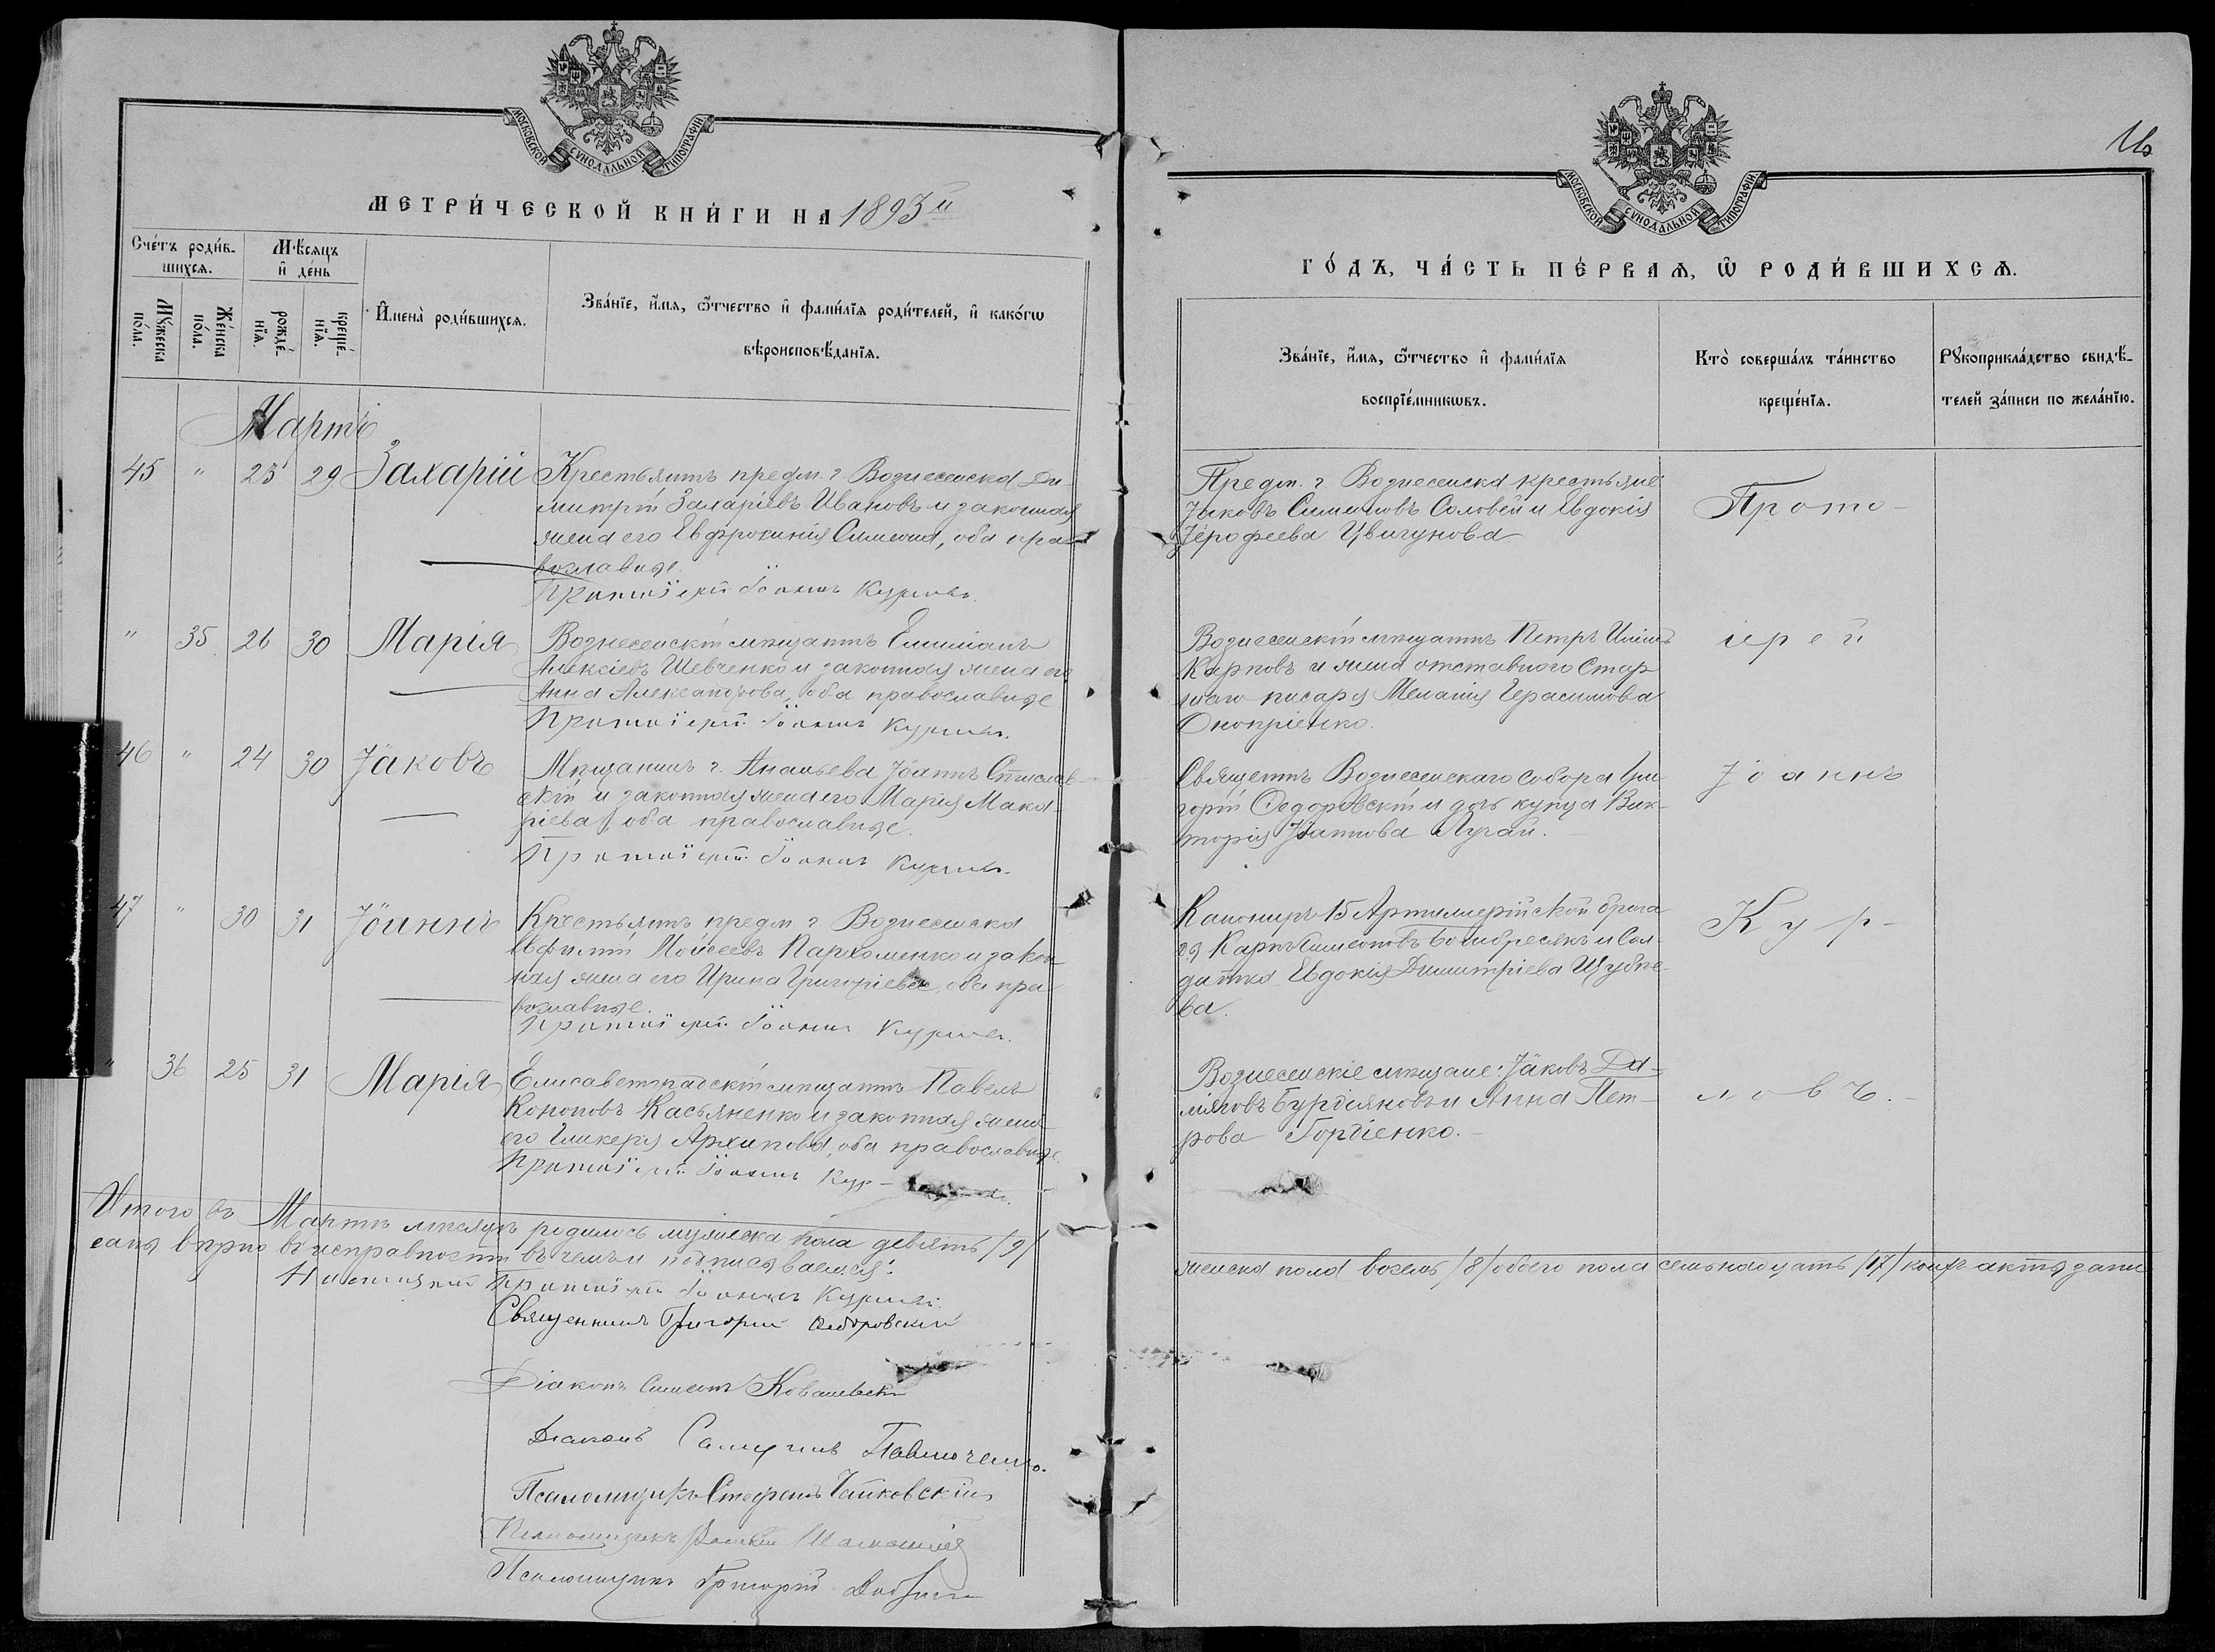 МОСКОВСКОЙ СѴНОДАЛЬНОЙ ТИПОГРАФІИ
МЕТРИ́ЧЕСКОЙ КНИ́ГИ НА 1893й
Сче́тъ роди́в-
шихсѧ.
Мѣ́сяцъ
и҆ де́нь
Мꙋ́жеска
по́ла.
Же́нска
по́ла.
рожде́-
нїѧ.
креще́-
нїѧ.
И҆мена̀ роди́вшихсѧ.
Зва́нїе, и҆́мѧ, ѻ҆́тчество и҆ фамѝлїѧ роди́телей, и҆ како́гѡ
вѣроисповѣ́данїѧ.
Мартъ
45 " 23 29 Захарій
Крестьянинъ предм. г. Вознесенска Ди-
митрій Захаріевъ Ивановъ и законная
жена его Евфросинія Симеона, оба пра-
вославные.
Протоіерей Іоаннъ Курловъ.
" 35 26 30 Марія
Вознесенскій мѣщанинъ Емиліанъ
Алексіевъ Шевченко и законная жена его
Анна Александрова, оба православные
Протоіерей Іоаннъ Курловъ.
46 " 24 30 Іаковъ
Мѣщанинъ г. Ананьева Іоаннъ
скій и законная жена его Марія Мака-
ріева, оба православные.
Протоіерей Іоаннъ Курловъ.
47 " 30 31 Іоаннъ
Крестьянинъ предм. г. Вознесенска
Евфимій Мойсеевъ Пархоменко и закон-
ная жена его Ирина Григоріева, оба пра-
вославные.
Протоіерей Іоаннъ Курловъ.
" 36 25 31 Марія
Елисаветградскій мѣщанинъ Павелъ
Кононовъ Касьяненко и законная жена
его Гликерія Архипова, оба православные.
Протоіерей Іоаннъ Кур-
Итого въ Мартѣ мѣсяцѣ родилось мужеска пола девять /9/
сана вѣрно въ исправности въ чемъ и подписываемся:
Протоіерей Іоаннъ Курловъ.
Священникъ Григорій Ѳедоровскій
Діаконъ Симеонъ Ковалевскій
Діаконъ Самуилъ Павлюченко.
Псаломщикъ Стефанъ Чайковскій
Псаломщикъ
Псаломщикъ Григорій
МОСКОВСКОЙ СѴНОДАЛЬНОЙ ТИПОГРАФІИ
ГО́ДЪ, ЧА́СТЬ ПЕ́РВАѦ, Ѡ҆ РОДИ́ВШИХСѦ.
Зва́нїе, и҆́мѧ, ѻ҆́тчество и҆ фамѝлїѧ
воспрїе́мникѡвъ.
Кто̀ соверша́лъ та́инство
креще́нїѧ.
Рꙋкоприкла́дство свидѣ́-
телей за́писи по жела́нїю.
Предм. г. Вознесенска крестьяне:
Іаковъ Симоновъ Соловей и Евдокія
Іерофеева Цвигунова
Прото-
Вознесенскій мѣщанинъ Петръ
Карповъ и жена отставного Стар-
шаго писаря Меланія Герасимова
Оноприенко.
іерей
Священникъ Вознесенскаго собора Гри-
горій Ѳедоровскій и дочь купца Вик-
торія Іоаннова Лугай.
Іоаннъ
Канониръ 15 Артиллерійской брига-
ды Карпъ Симеоновъ и Сол-
датка Евдокія Димитріева
ва.
Кур-
Вознесенскіе мѣщане: Іаковъ Да-
міановъ Бурдіяновъ и Анна Пет-
рова Гордіенко.
ловъ.
женска пола восемь /8/ обоего пола семьнадцать /17/ акты запи